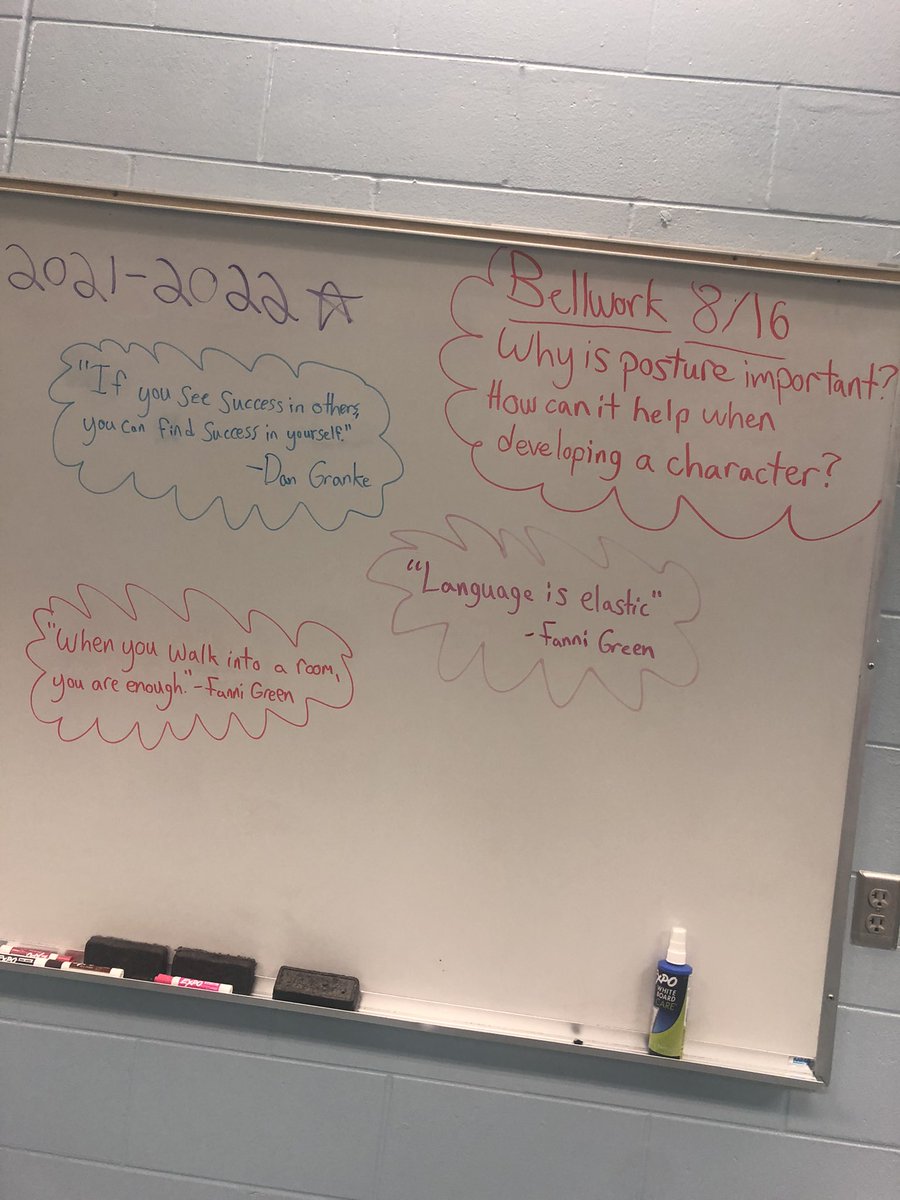 2021-2022
Bellwork 8/16
Why is posture important?
How can it help when
developing a character?
"If you see Success in others,
you can find Success in yourself."
-Dan Granke
"Language is elastic"
-Fanni Green
"When you walk into a room,
you are enough." -Fanni Green
EXPO
EXPO
WHITE
BOARD
CARE